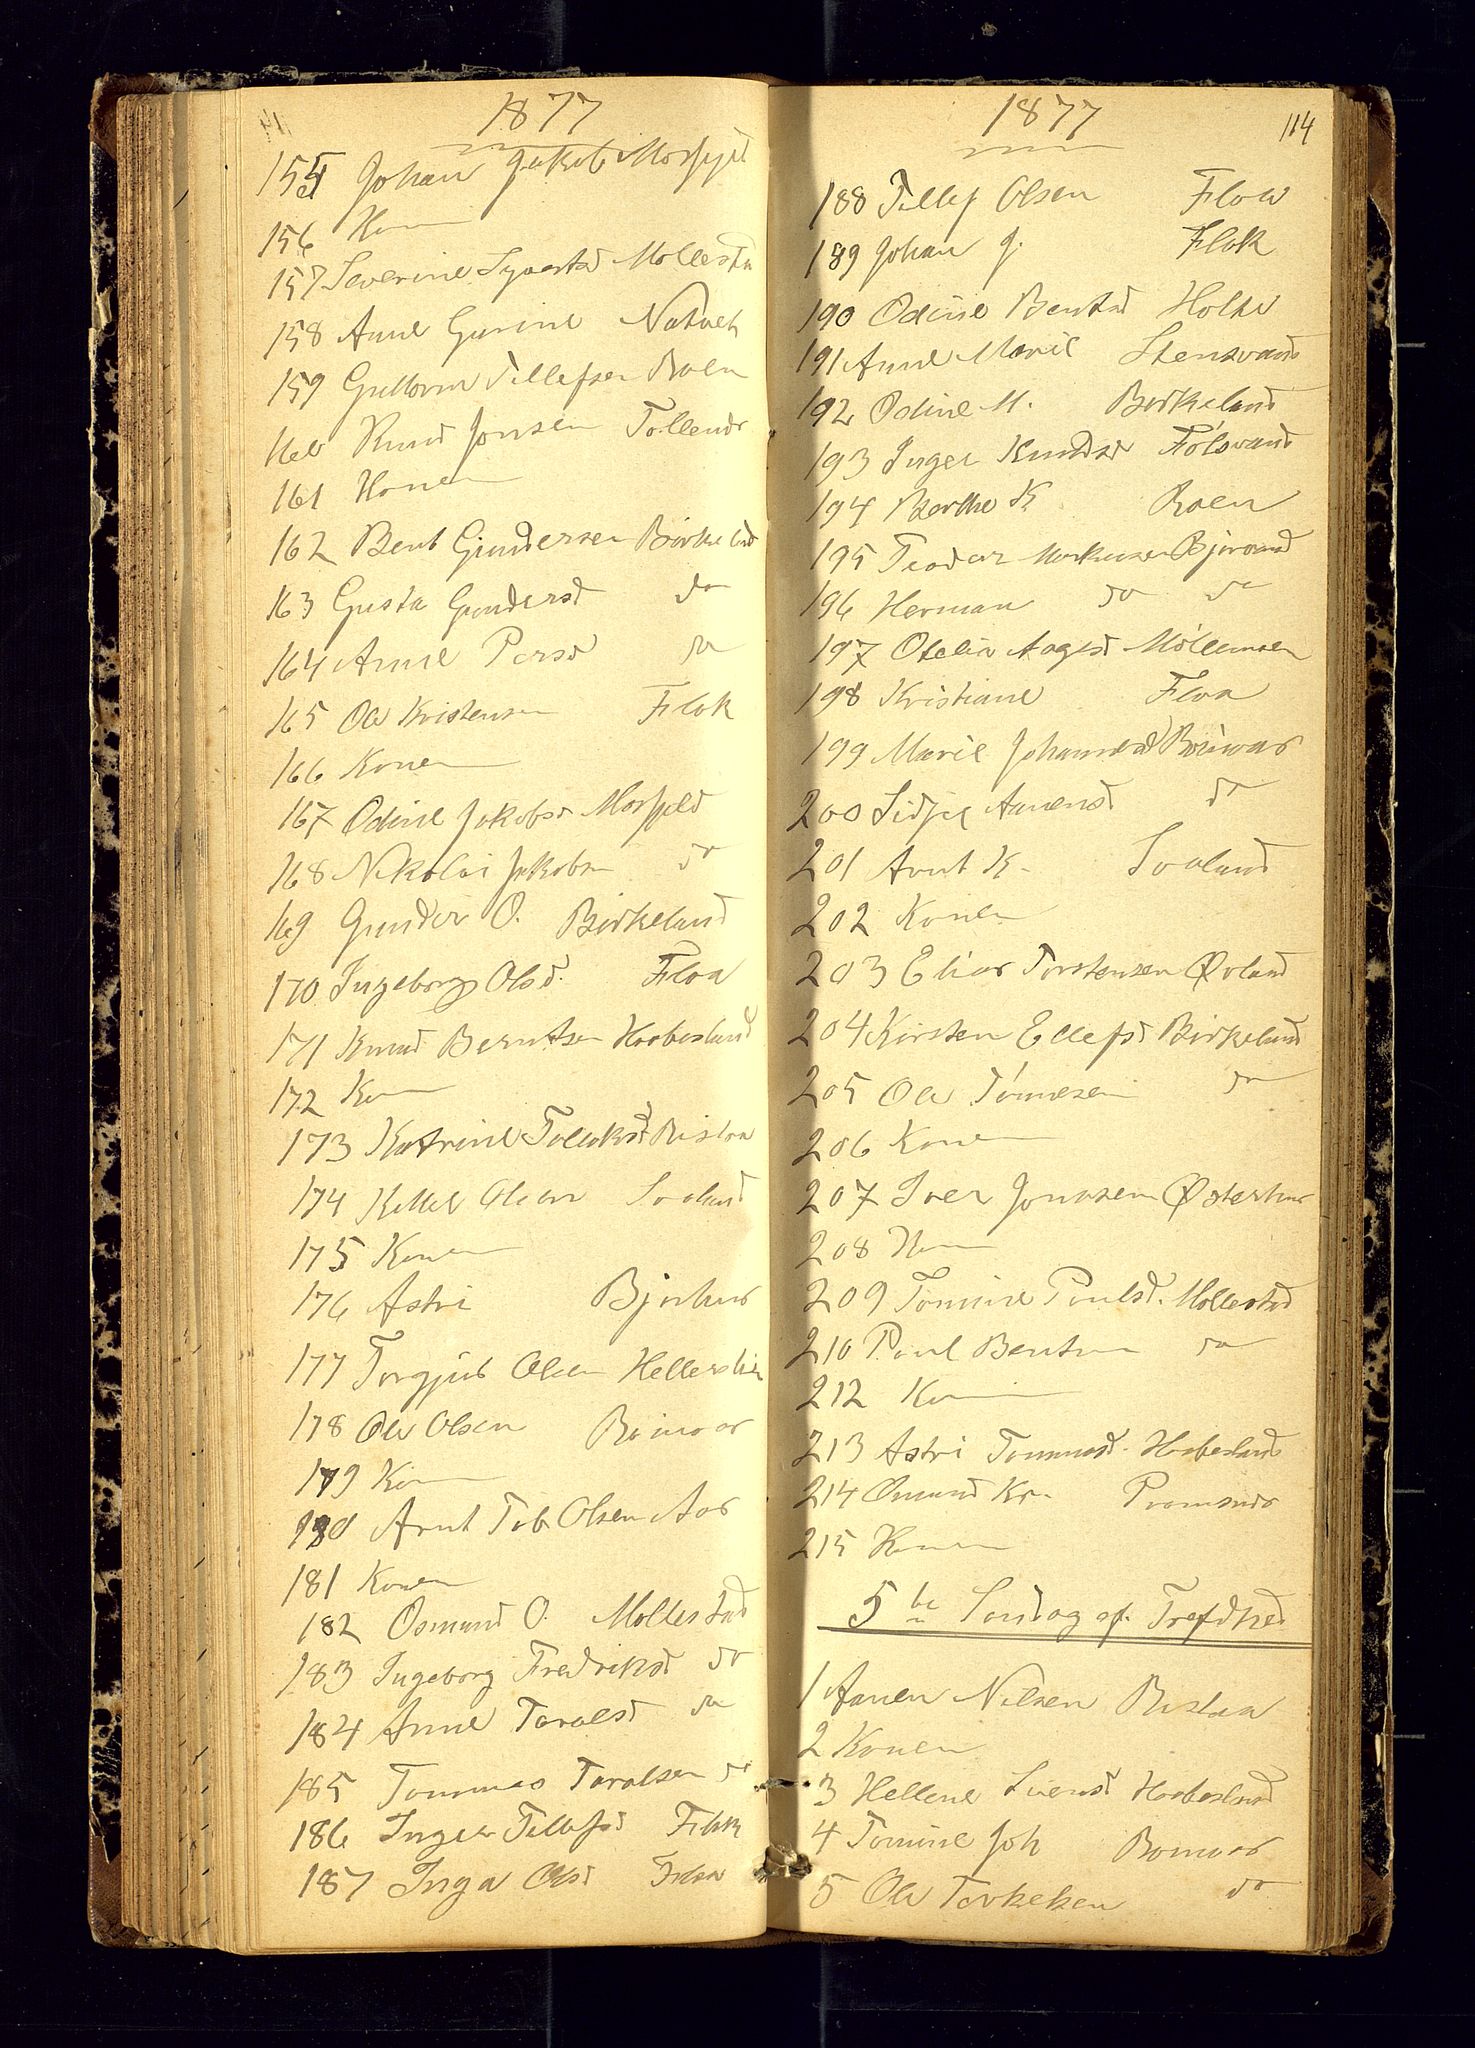 1877
155 Johan Jakob Mosfjel
156 Kon
157 Severine Syverts Mollesta
158 Anne Gurine
159 Guttorm Tellefsen Roen
160 Knud Jonsen
161 Konen
162 Bent Gundersen Birkeland
163 Gusta Gundersd do
164 Anne Persd do
165 Ole Kristensen Flok
166 Konen
167 Odine Jakobsd Mosfjeld
168 Nikolai Jakobsn do
169 Gunder O. Birkeland
170 Ingeborg Olsd. Floa
171 Knud Berntsen Hoobesland
172 Kon
173 Katrine Tellefsd Ristaa
174 Kittel Olsen Soeland
175 Konen
176 Astri Bjorhus
177 Torgjus Olsen Hellerslien
178 Ole Olsen Boinvar
179 Kon
180 Arnt Tob Olsen Aas
181 Konen
182 Osmund O. Mollestad
183 Ingeborg Fredriksd do
184 Anne Taralsd do
185 Tommas Taralsen do
186 Inger Tellefsd Flok
187 Inga Olsd Floa
1877
114
188 Tellef Olsen Floa
189 Johan J. Flok
190 Odine Bentsd Holte
191 Anne Marie Stensvand
192 Odine M. Birkeland
193 Inger Knudsd Fölsvand
194 Berthe K Roen
195 Teodor Markusen Bjorvand
196 Herman do do
197 Otelia Aagesd Möllemoen
198 Kristiane Floa
199 Marie Johannesd Boinvar
200 Sidsel Aanensd do
201 Arnt K. Soeland
202 Konen
203 Elias Torstensen Øvland
204 Kirsten Ellefsd Birkeland
205 Ole Tönnesen do
206 Konen
207 Iver Jonassen Østerhus
208 Kon
209 Tomine Poulsd. Mollestad
210 Poul Bentsn do
212 Kon
213 Astri Tommasd. Hoobesland
214 Osmund Kr.
215 Konen
5te Søndag ef. Trefdhed
1 Aanen Nilsen Ristaa
2 Konen
3 Hellene Svensd Hoobesland
4 Tomine Joh Boinvar
5 Ole Terkelsen do